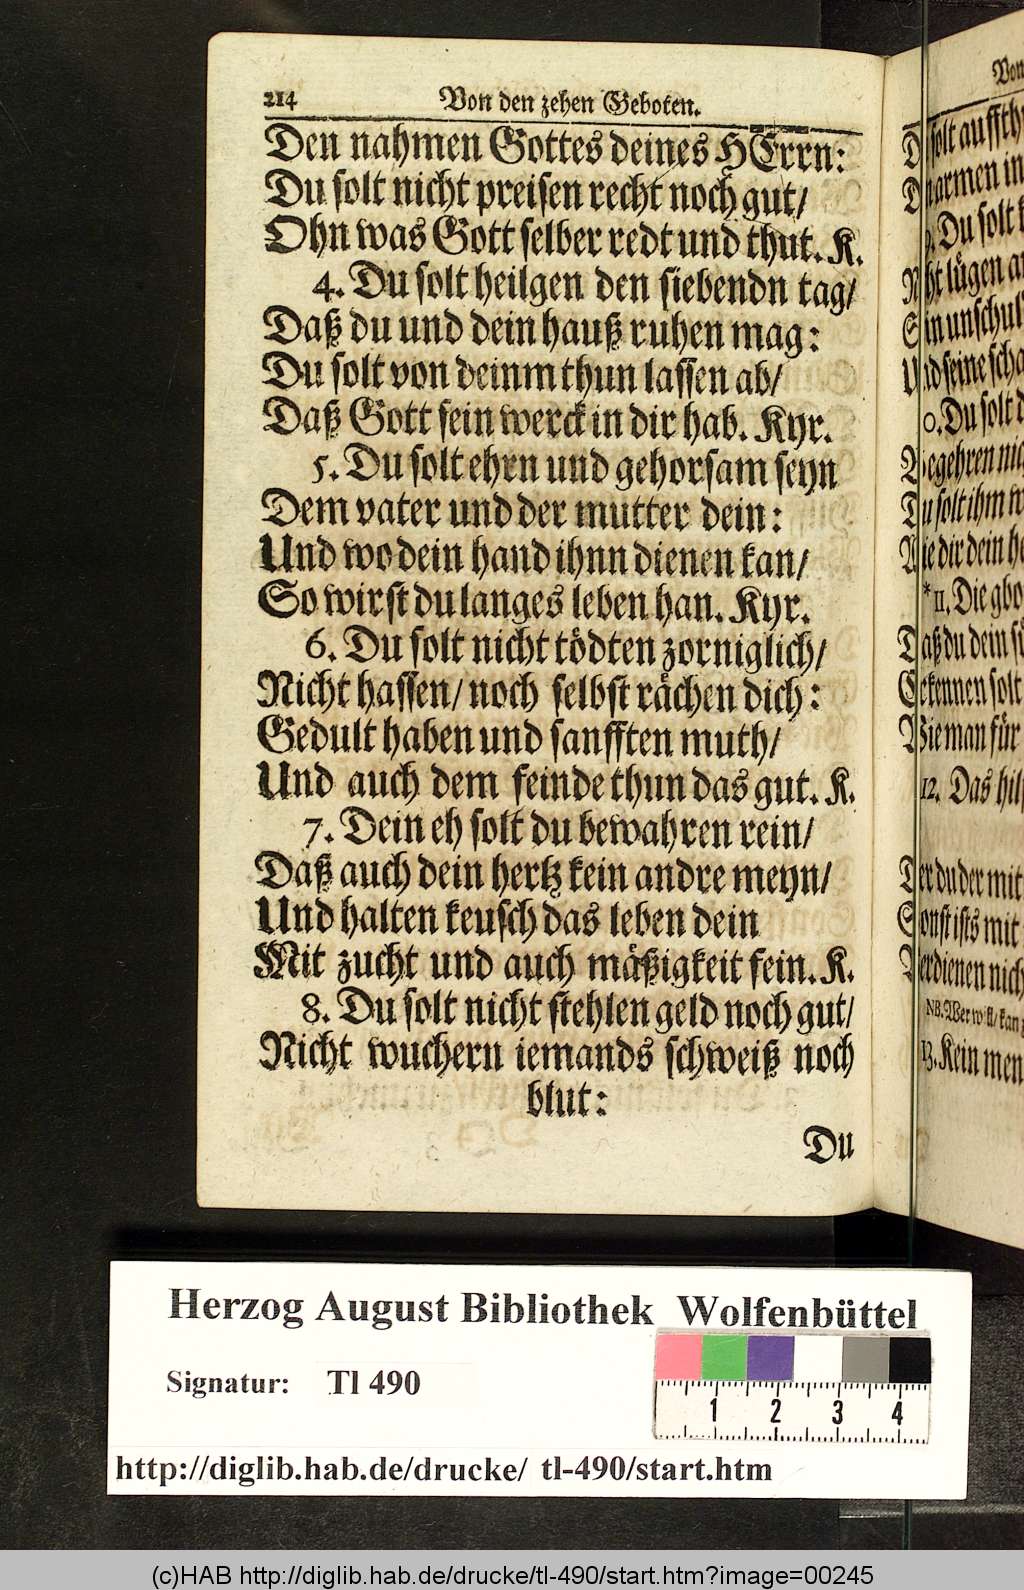 214 Von den zehen Geboten.
Den nahmen Gottes deines HErrn:
Du solt nicht preisen recht noch gut/
Ohn was Gott selber redt und thut. K.
4. Du solt heilgen den siebendn tag/
Daß du und dein hauß ruhen mag:
Du solt von deinm thun lassen ab/
Daß Gott sein werck in dir hab. Kyr.
5. Du solt ehrn und gehorsam seyn
Dem vater und der mutter dein:
Und wo dein hand ihnn dienen kan/
So wirst du langes leben han. Kyr.
6. Du solt nicht tödten zorniglich/
Nicht hassen/ noch selbst rächen dich:
Gedult haben und sanfften muth/
Und auch dem feinde thun das gut. K.
7. Dein eh solt du bewahren rein/
Daß auch dein hertz kein andre meyn/
Und halten keusch das leben dein
Mit zucht und auch mäßigkeit fein. K.
8. Du solt nicht stehlen geld noch gut/
Nicht wuchern iemands schweiß noch
blut:
Du
Von
solt auffth
armen in
Du solt
lügen
unschul
seine
Du solt
solt ihm
dir dein
*11. Die
du dein
solt
man für
12. Das
du der mit
ists mit
NB. Wer will/ kan
13. Kein men
Herzog August Bibliothek Wolfenbüttel
Signatur: Tl 490
1 2 3 4
http://diglib.hab.de/drucke/ tl-490/start.htm
(c)HAB http://diglib.hab.de/drucke/tl-490/start.htm?image=00245